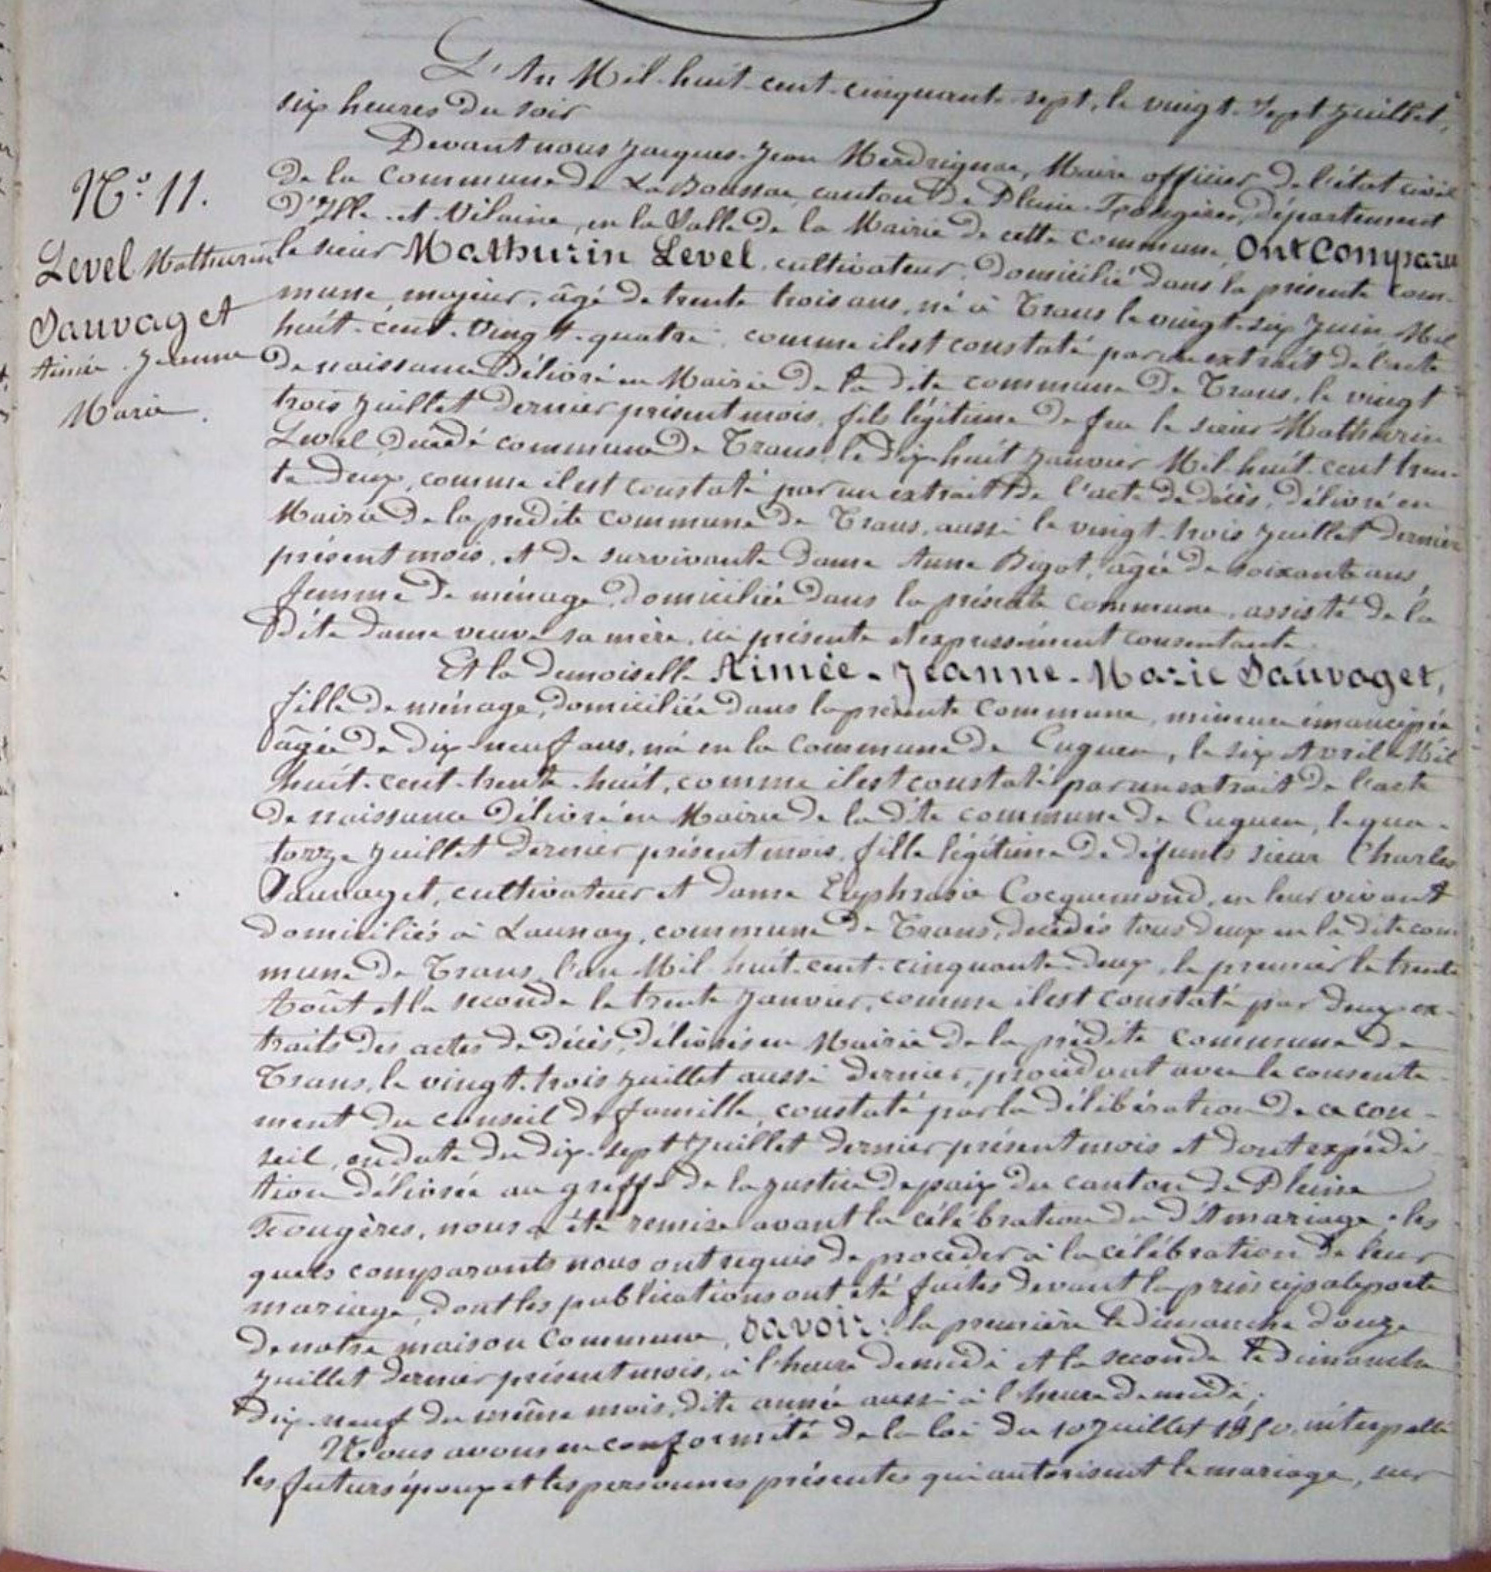 L'An Mil-huit-cent-cinquante-sept, le vingt-sept Juillet,
six heures du soir
Devant nous Jacques-Jean Merdrignac, Maire officier de l'état civil
de la Commune de La Boussac, canton de Pleine-Fougères, département
d'Ille-et-Vilaine, en la Salle de la Mairie de cette commune, Ont Comparu
le sieur Mathurin Level, cultivateur, domicilié dans la présente com-
mune, majeur, âgé de trente trois ans, né à Trans le vingt-six Juin Mil
huit-cent-vingt-quatre, comme il est constaté par un extrait de l'acte
de naissance délivré en Mairie de la dite commune de Trans, le vingt
trois Juillet dernier présent mois, fils légitime de feu le sieur Mathurin
Level, décédé commune de Trans, le dix-huit Janvier Mil-huit-cent tren-
te deux, comme il est constaté par un extrait de l'acte de décès, délivré en
Mairie de la predite commune de Trans, aussi le vingt-trois Juillet dernier
présent mois, et de survivante dame Anne Bigot, âgée de soixante ans,
femme de ménage, domiciliée dans la présente commune, assisté de la
dite dame veuve sa mère, ici présente et expressément consentante.
Et la demoiselle Aimée-Jeanne-Marie Sauvaget,
fille de ménage, domiciliée dans la présente Commune, mineure émancipée
âgée de dix-neuf ans, né en la Commune de Cuguen, le six Avril Mil
huit-cent-trente-huit, comme il est constaté par un extrait de l'acte
de naissance délivré en Mairie de la dite commune de Cuguen, le qua-
torze Juillet dernier présent mois, fille légitime de défunts sieur Charles
Sauvaget, cultivateur et dame Euphrasie Cocquemond, en leur vivant
domiciliés à Launay, commune de Trans, décédés tous deux en la dite com
mune de Trans, l'an Mil-huit-cent-cinquante-deux, le premier le trente
Août et la seconde le trente Janvier, comme il est constaté par deux ex-
traits des actes de décès, délivrés en Mairie de la prédite Commune de
Trans, le vingt-trois Juillet aussi dernier, procédant avec le consente-
ment du conseil de famille, constaté par la délibération de ce con-
seil, en date du dix-sept Juillet dernier présent mois et dont expédi-
tion délivrée au greffe de la Justice de paix du canton de Pleine
Fougères, nous a été remise avant la célébration du dit mariage; les
quels comparants nous ont requis de procéder à la célébration de leur
mariage, dont les publications ont été faites devant la principale porte
de notre maison Commune, Savoir: la première le dimanche douze
Juillet dernier présent mois, à l'heure de midi et la seconde le dimanche
dix-neuf du même mois, dite année aussi à l'heure de midi;
Nous avons en conformité de la loi du 10 Juillet 1850, interpellé
les futurs époux et les personnes présentes qui autorisent le mariage, sur
N.° 11.
Level Mathurin
Sauvaget
Aimée-Jeanne
Marie.